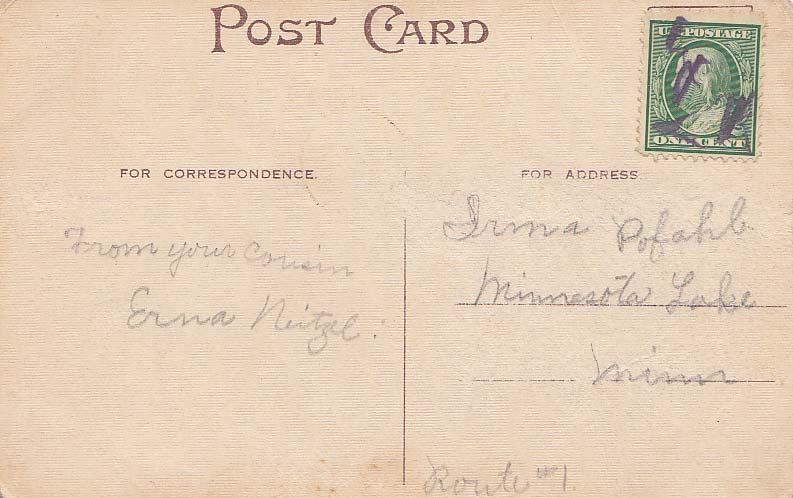 POST CARD
U.S. POSTAGE
ONE CENT
FOR CORRESPONDENCE.
From your cousin
Erna Neitzel.
FOR ADDRESS
Irma Pofahl.
Minnesota Lake
Minn
Route #1.